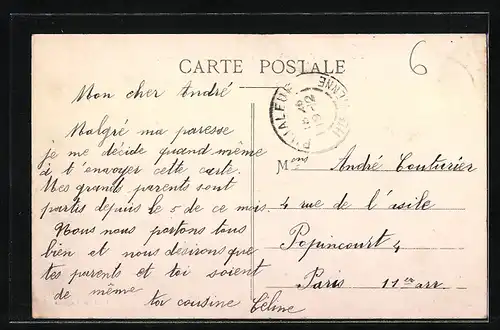 6
CARTE POSTALE
Mon cher André
Malgré ma paresse
je me décide quand même
à t'envoyer cette carte.
Mes grands parents sont
partis depuis le 5 de ce mois.
Nous nous portons tous
bien et nous désirons que
tes parents et toi soient
de même
ta cousine Céline
M André Couturier
4 rue de l'asile
Popincourt 4
Paris 11e arr